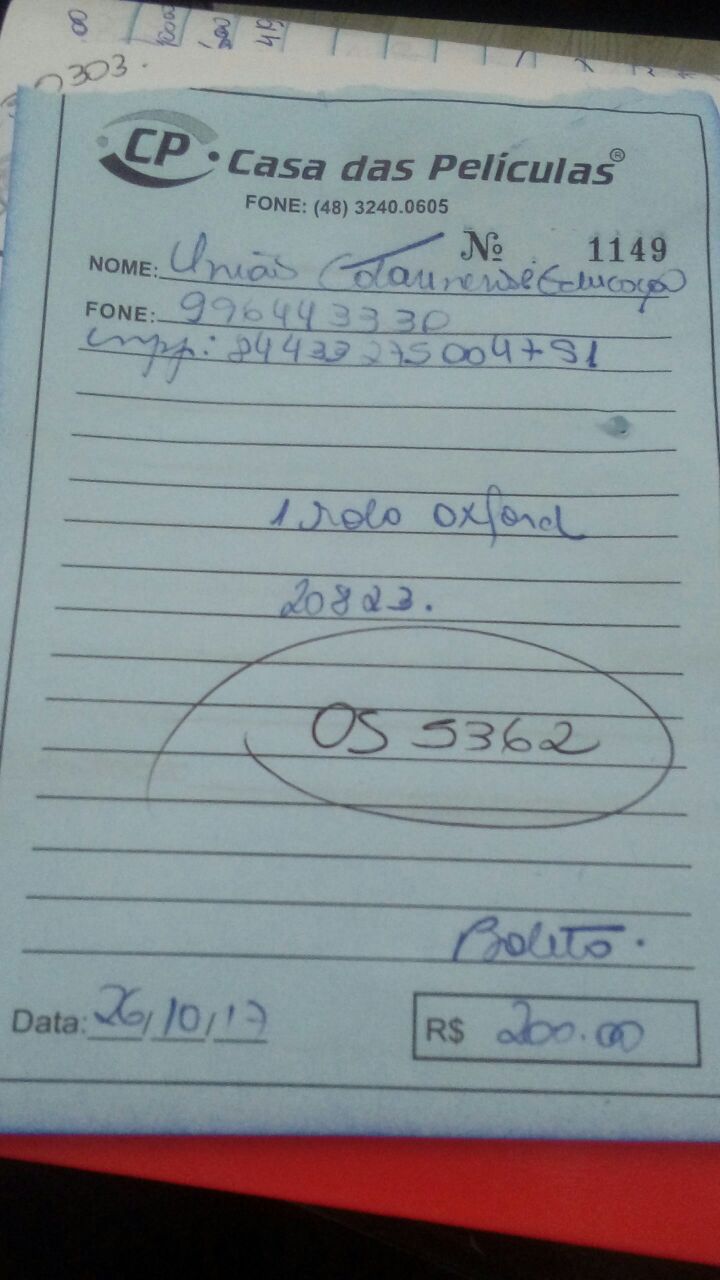 303.
CP
Casa das Películas®
FONE: (48) 3240.0605
Nº 1149
NOME: União Catarinense Educação
FONE: 996443330
cnpj: 84433275004751
1 rolo oxford
20823.
OS 5362
Boleto.
Data: 26/10/17
R$ 200.00